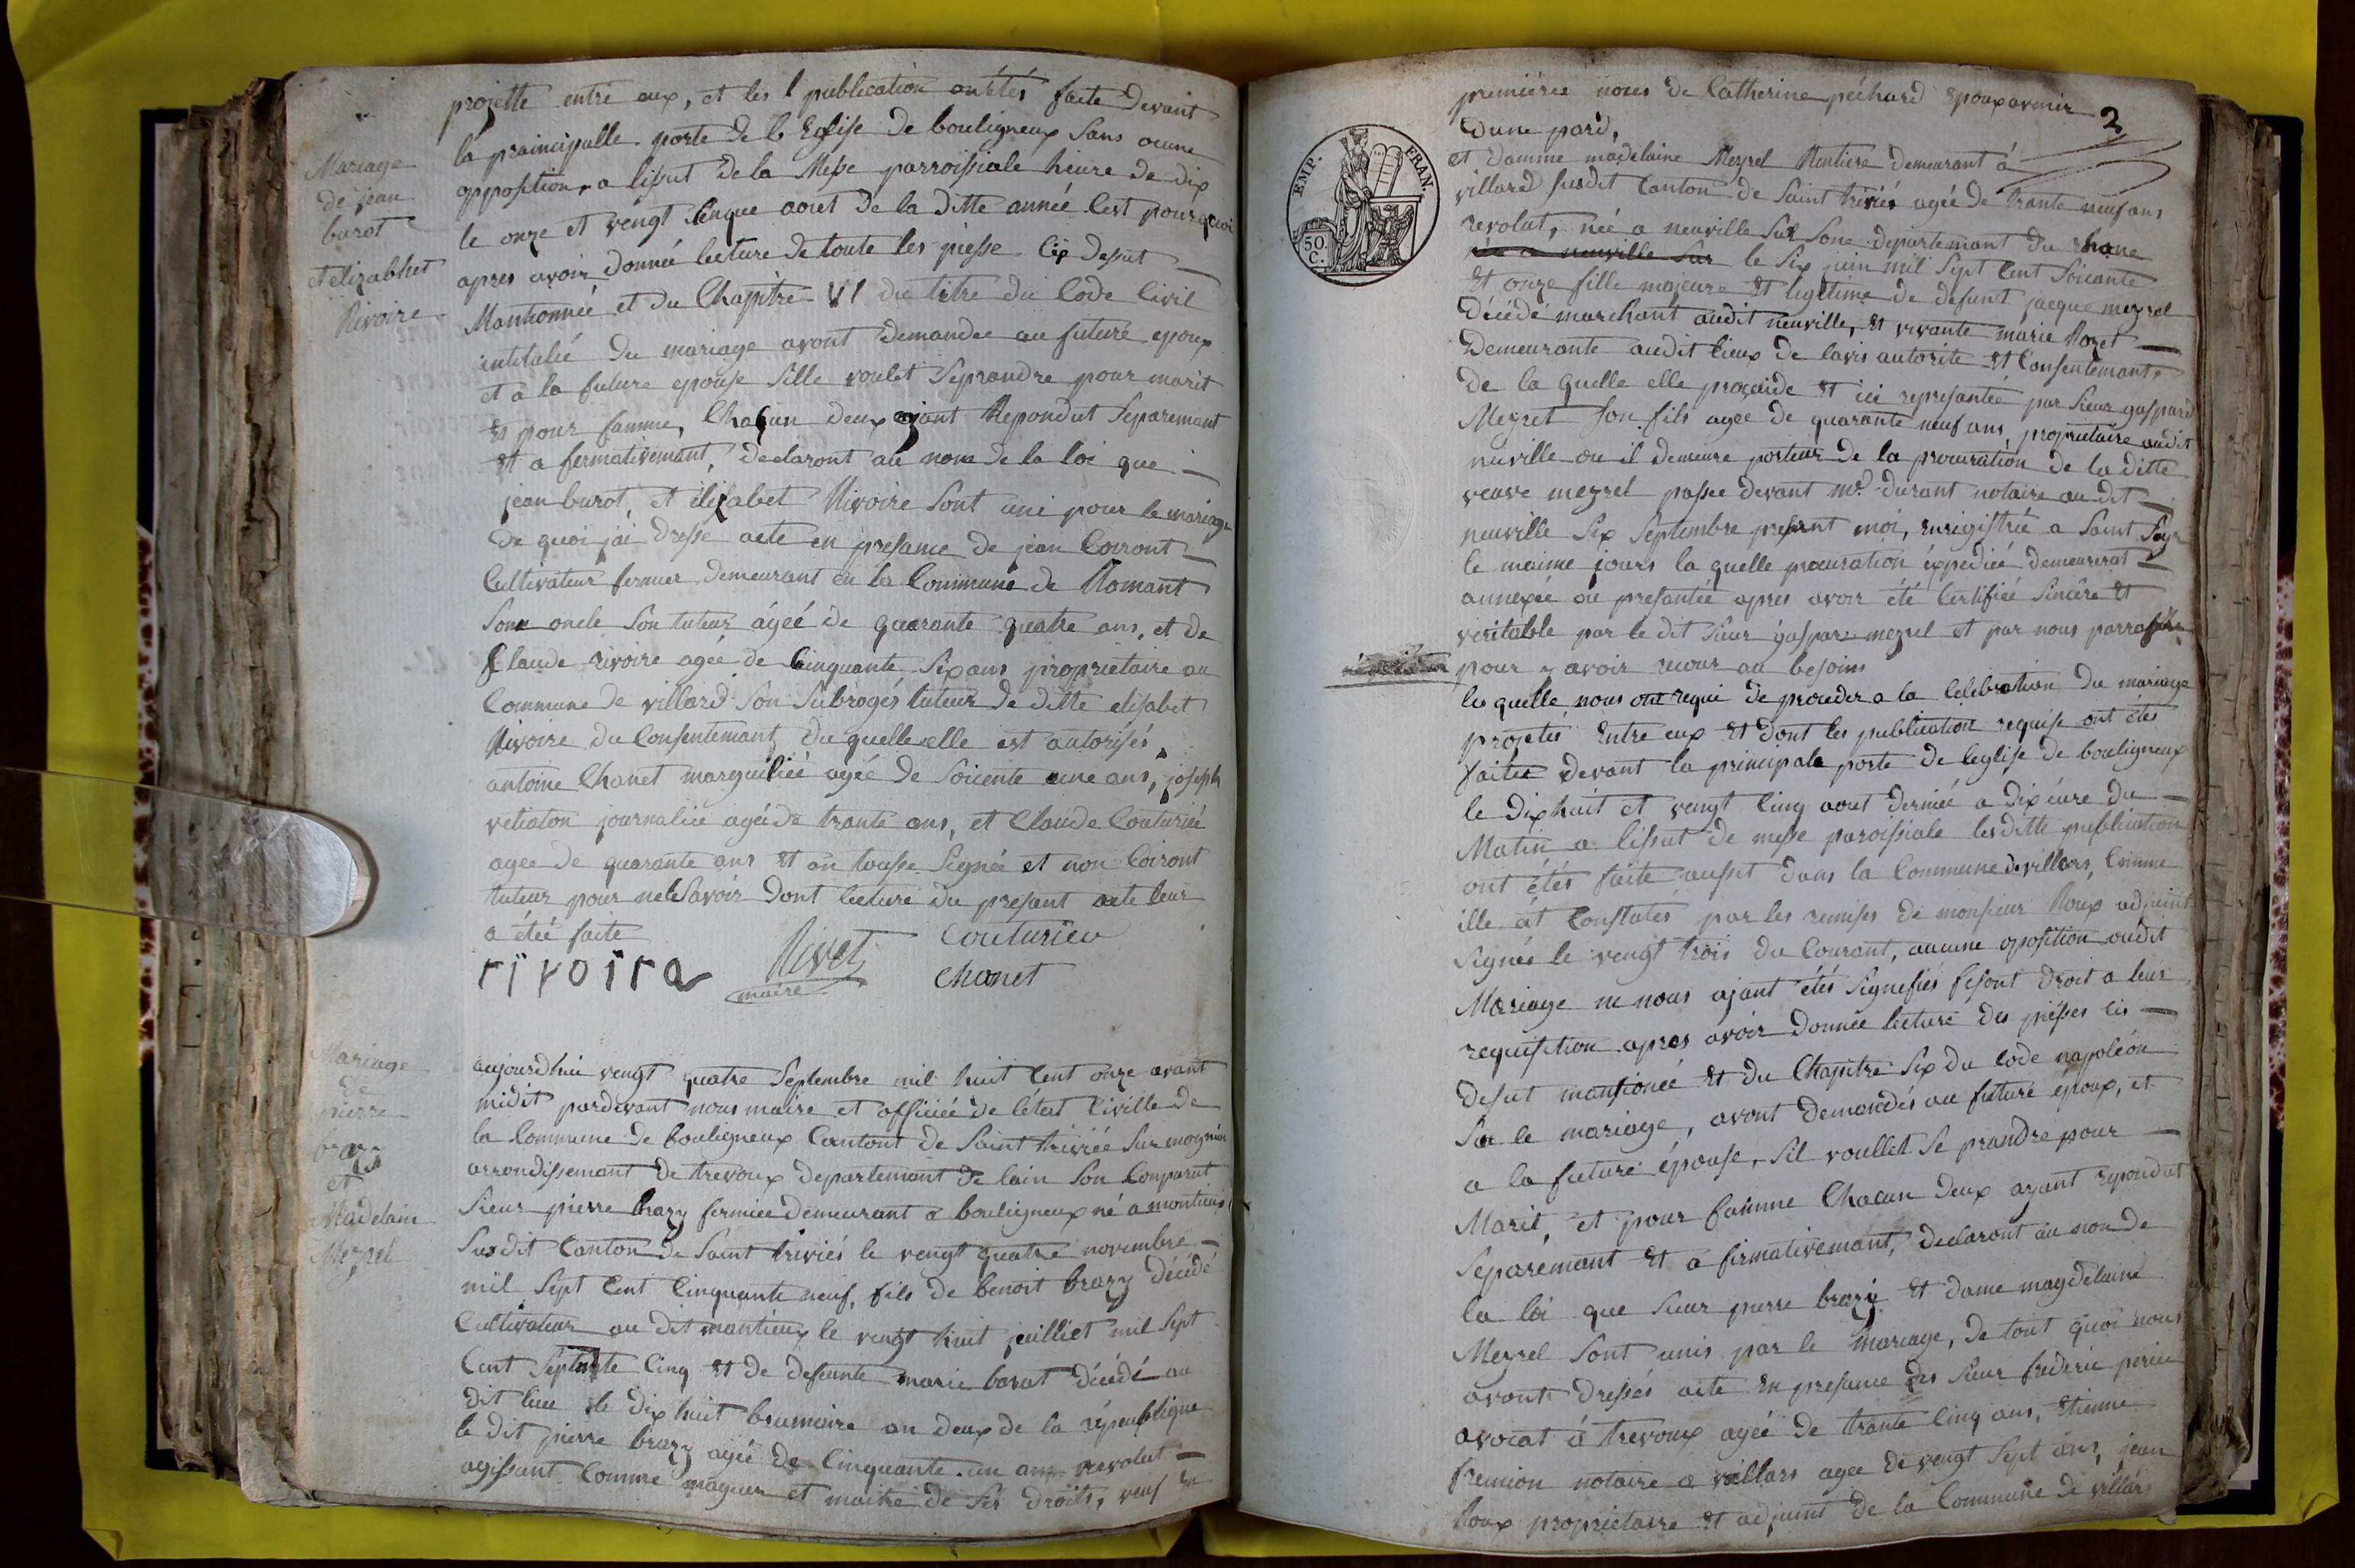 projette entre eux, et les 1 publication ont étés faite devant
la praincipalle porte de l Eglise de bouligneux sans ocune
opposition, a lissut de la Messe parroissiale heure de dix
le onze et vengt cinque aout de la ditte année Cest pourquoi
apres avoir donnée lecture de toute les piesse cis dessut
Mantionnée et du Chapitre VI du titre du Code Civil
intitulié du mariage avont demandee au futuré epoux
et a la future epouse sille voulet seprandre pour marit
et pour famme, Chacun deux ajant Repondut Separemant
et a fermativemant, declaront au nom de la loi que
jean burot, et élizabet Rivoire sont uni pour le mariage
de quoi jai dresse acte en presance de jean Coiront
Cultivateur fermier demeurant en la Commune de Romant
Son oncle son tuteur agéé de quarante quatre ans, et de
Claude rivoire agée de Cinquante six ans proprietaire au
Commune de villard son subrogés tuteur de ditte elisabet
Rivoire du Consentemant duquelle elle est autorisés,
antoine Chanet marguillié agée de soicente une ans, joseph
journaliée agée de trante ans, et Claude Couturiée
agee de quarante ans et on tousse Signée et non Coiront
tuteur pour ne le Savoir dont lecture du presant acte leur
a étéé faite
rivoira Rivet Couturieu
maire Chanet
Mariage
de jean
burot
et elizabhet
Rivoire
Mariage
de
pierre
et
Madelain
Mezrel
aujourdhui vengt quatre Septembre mil huit Cent onze avant
midit pardevant nous maire et officiée de letat Civille de
la Commune de bouligneux Cantont de Saint triviée sur mognien
arrondissemant de trevoux departemant de lain Son Comparut
Sieur pierre brazy fermiee demeurant a bouligneux né a montieux
Susdit Canton de Saint triviés le vengt quatre novembre
mil sept Cent Cinquante neuf, fils de benoit brazy décédé
Cultivateur au dit montieux le vengt huit juilliet mil Sept
Cent séptante Cinq et de defunte marie bavat décédé au
dit lieu le dix huit brumaire an deux de la république
le dit pierre brazy agée de Cinquante un ans revolut
agissant Comme mageur et maitre de ses droits, veuf en
premiérée noces de Catherine péchard epoux avenir 2
dune pard,
et damme madelaine Mezrel Rentiere demeurant à
villard susdit Canton de Saint triviés agée de trante neuf ans
revolut, née a neuville Sur Sone departemant du Rhone
née a neuville Sur le six juin mil sept Cent soicante
et onze fille majeure et legitime de defunt jacque mezrel
décédé marchant audit neuville, et vivante marie Rozet
demeurante audit lieux de lavis autorité et Consentemant,
de la quelle elle proçaide et ici represantée par sieur gaspard
Mezret son fils agee de quarante neuf ans, propriétaire audit
neuville ou il demeure porteur de la procuration de la ditte
veuve mezrel passee devant me durant notaire au dit
neuville six septembre presant moi, enrigistrée a Saint
le maime jours la quelle procuration éxpediéé demeurerat
annexée au presantée apres avoir été Certifiée sincére et
veritable par le dit sieur gaspar mezrel et par nous
pour y avoir recour au besoins
les quelle nous ont requi de proceder a la Celebration du mariage
projetés entre eux et dont les publication requise ont étés
faites devant la principale porte de leglise de bouligneux
le dixhuit et vengt Cinq aout derniée a dix éure du
Matin a lissut de messe paroissiale lesditte publication
ont étés faite aussit dans la Commune de villars, Comme
ille ât Constatés par les remises de monsieur Roux adjoint
Signée le vengt trois du Courant, aucune oposition oudit
Mariage ne nous ajant étés Signefiés fesont droit a leur
requisition apres avoir donnée lecture des piésses cis
desut mantionée et du Chapitre six du Code napoléon
Sur le mariage, avont demandés au futuré époux, et
a la future épouse, sil voullet se prandre pour
Marit, et pour famme Chacun deux ayant repondut
Separémant et a firmativemant, declaront au non de
la loi que sieur pierre brazy et dame magdelaine
Mezrel sont unis par le mariage, de tout quoi nous
avont dressés acte en presance des sieur frederic perier
avocat à trevoux agée de trante Cinq ans, Etienne
fremion notaire a villars agee de vengt sept ans, jean
Roux proprietaire et adjoint de la Commune de villars
EMP. FRAN.
50.
C.